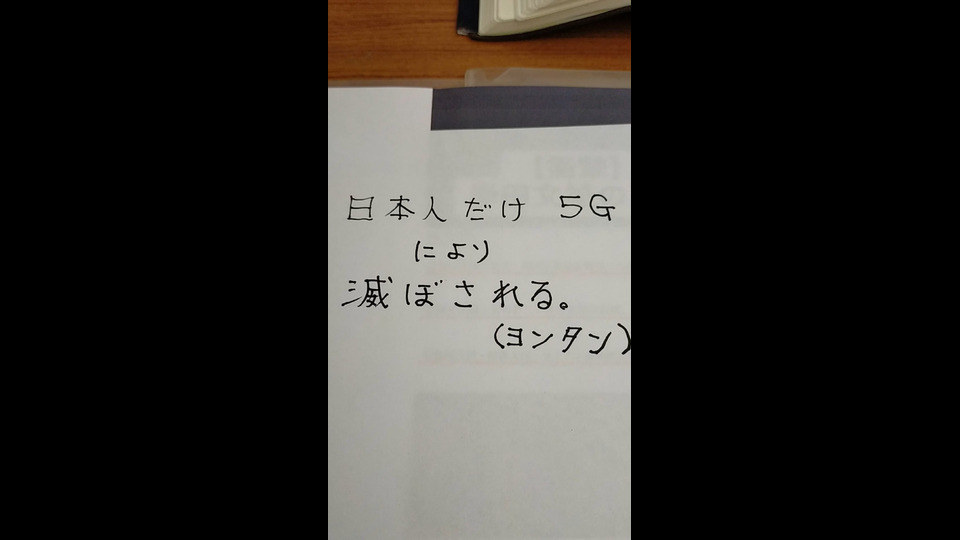 日本人だけ 5G
により
滅ぼされる。
(ヨンタン)